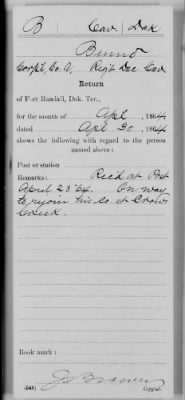 B Cav Dak
Co. A, Reg't Dak Cav
Return
of Fort Randall, Dak. Ter.,
for the month of April, 1864
dated Apl 30, 1864
shows the following with regard to the person
named above:
Post or station
Remarks: Rec'd at Post
April 23 64. On way
to rejoin his Co. at Crow
Creek.
Book mark:
Copyist.